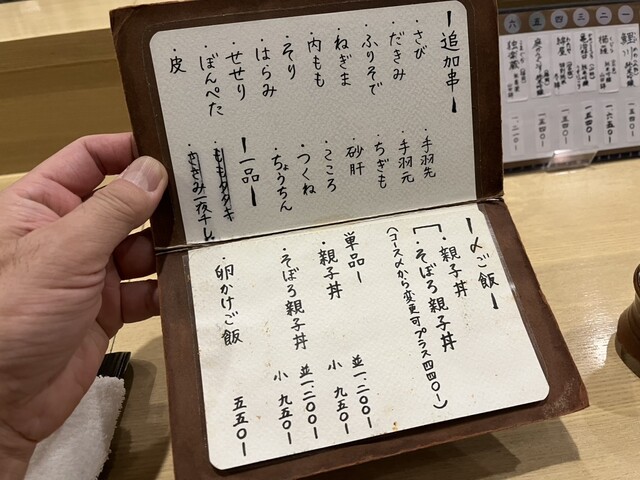 ー追加串ー
・さび
・だきみ
・ふりそで
・ねぎま
・内もも
・そり
・はらみ
・せせり
・ぼんぺた
・皮
・手羽先
・手羽元
・ちぎも
・砂肝
・こころ
・つくね
・ちょうちん
ー一品ー
・ももタタキ
・ささみ一夜干し
ー〆ご飯ー
・親子丼
・そぼろ親子丼
(コース〆から変更可プラス四四〇ー)
単品ー
・親子丼 並一、二〇〇ー
小 九五〇ー
・そぼろ親子丼 並一、二〇〇ー
小 九五〇ー
・卵かけご飯 五五〇ー
一
二
三
四
五
六